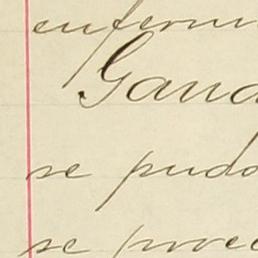 enferm
Gand
se pudo
se proce